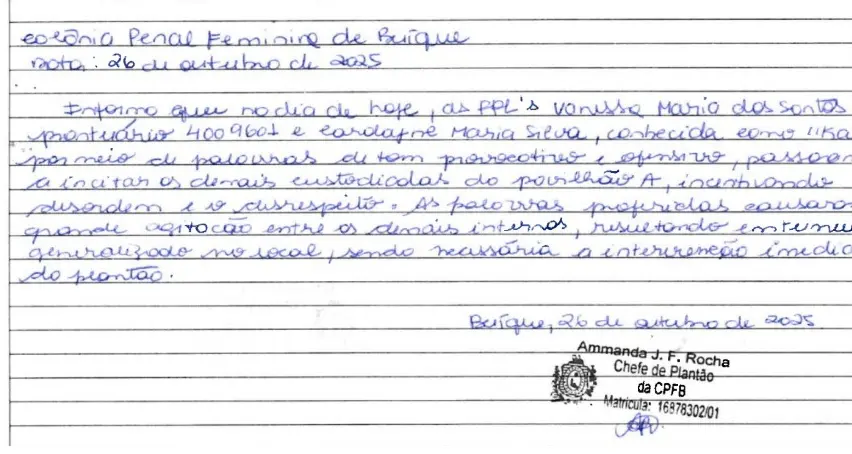 Colônia Penal Feminina de Buíque
Data: 26 de outubro de 2025
Informo que no dia de hoje, as PPL's Vanessa Maria dos Santos
prontuário 4009601 e Maria Silva, conhecida como "Ka
por meio de palavras de tom provocativo e ofensivo, passaram
a incitar as demais custodiadas do pavilhão A, incentivando
desordem e o desrespeito. As palavras proferidas causaram
grande agitação entre as demais internas, resultando em tumu
generalizado no local, sendo necessária a intervenção imedia
do plantão.
Buíque, 26 de outubro de 2025
Ammanda J. F. Rocha
Chefe de Plantão
da CPFB
Matrícula: 16878302/01